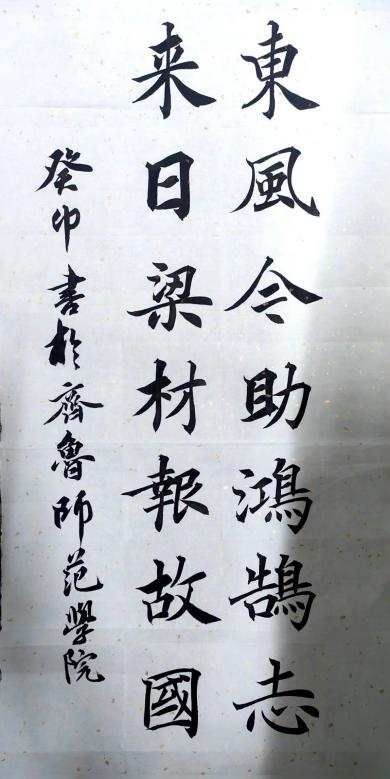 東風今助鴻鵠志
来日梁材報故國
癸卯書於齊魯師范學院